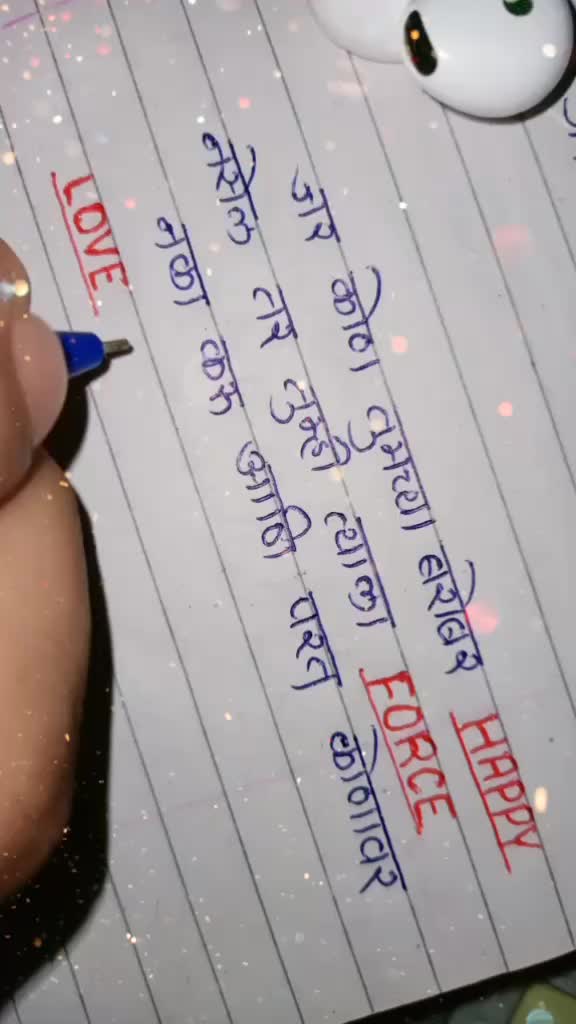 जर कोणा तुमच्या बरोबर HAPPY
नसेल तर तुम्ही त्याला FORCE
नका करू आणि परत कोणावर
LOVE